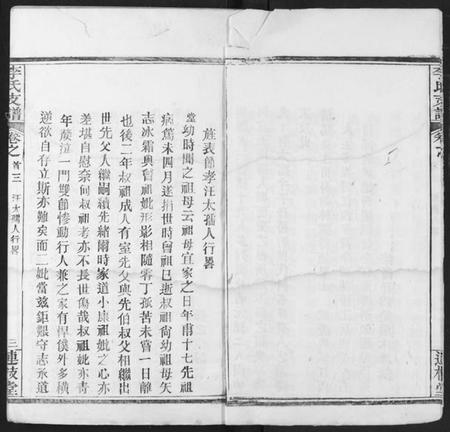 旌表節孝汪太孺人行畧
堂幼時聞之祖母云祖母宜家之日年甫十七先祖
病篤未四月遂捐世時曾祖巳逝叔祖尙幼祖母矢
志冰霜與曾祖妣形影相隨零丁孤苦未嘗一日離
也後二年叔祖成人有室先父與先伯叔父相繼出
世先父人繼嗣續先緒爾時家道小康祖妣之心亦
差堪自慰奈何叔祖考亦不長世傷哉叔祖妣亦靑
年蔆泣一門雙節慘動行人兼之家有悍僕外多橫
逆欲自存立斯亦難矣而二妣當兹鉅艱守志承道
李氏支譜
卷之
首三
汪太孺人行畧
三
連枝堂
李氏支譜
卷之
連枝堂